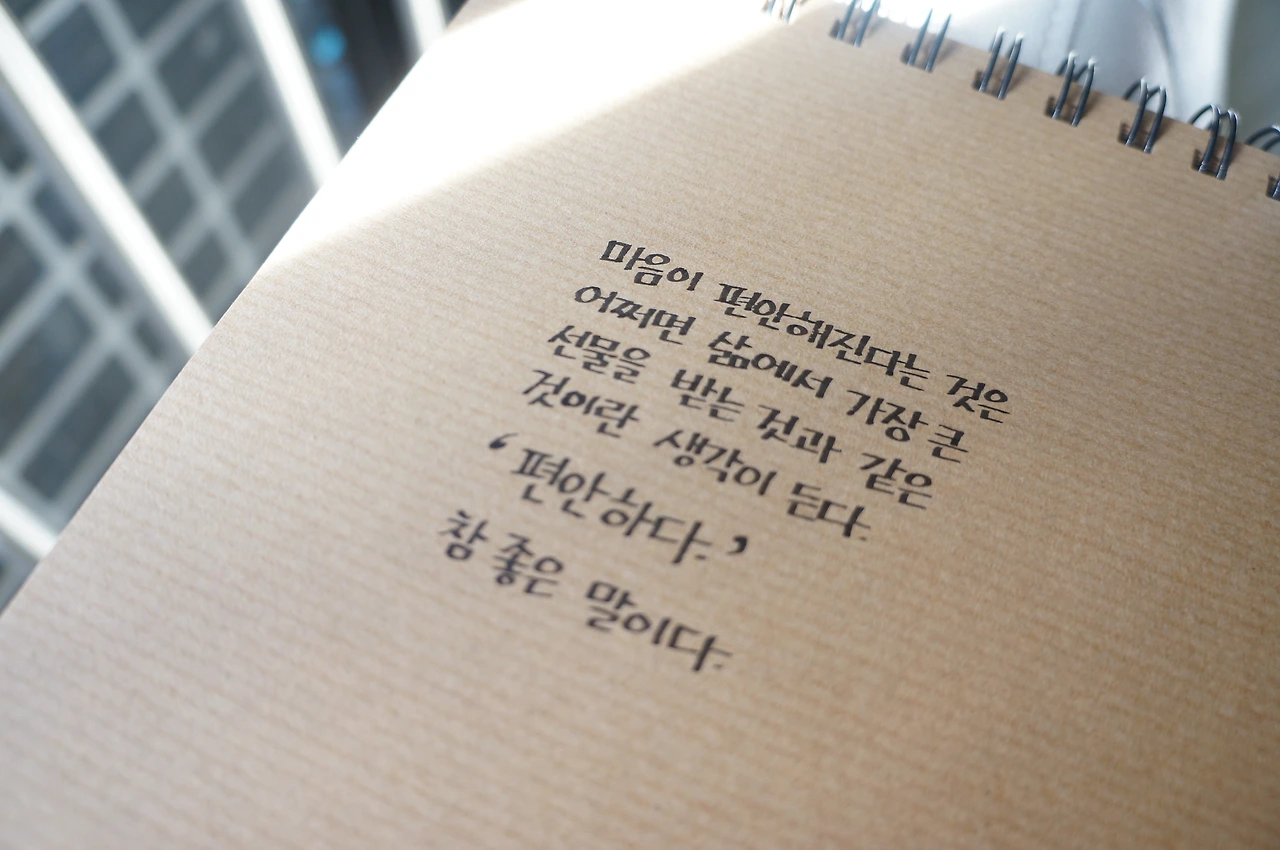 마음이 편안해진다는 것은
어쩌면 삶에서 가장 큰
선물을 받는 것과 같은
것이란 생각이 든다.
‘편안하다.’
참 좋은 말이다.